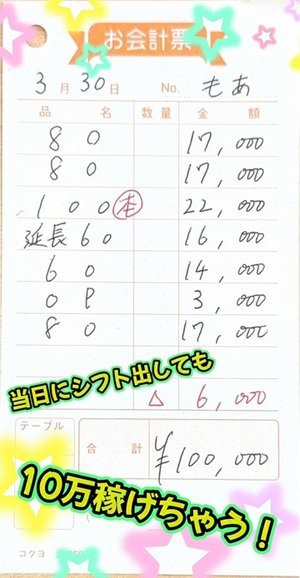 お会計票
3月30日 No. もあ
品名 数量 金額
80 17,000
80 17,000
100㊍ 22,000
延長60 16,000
60 14,000
OP 3,000
80 17,000
当日にシフト出しても
△ 6,000
テーブル
合計 ¥100,000
10万稼げちゃう!
コクヨ